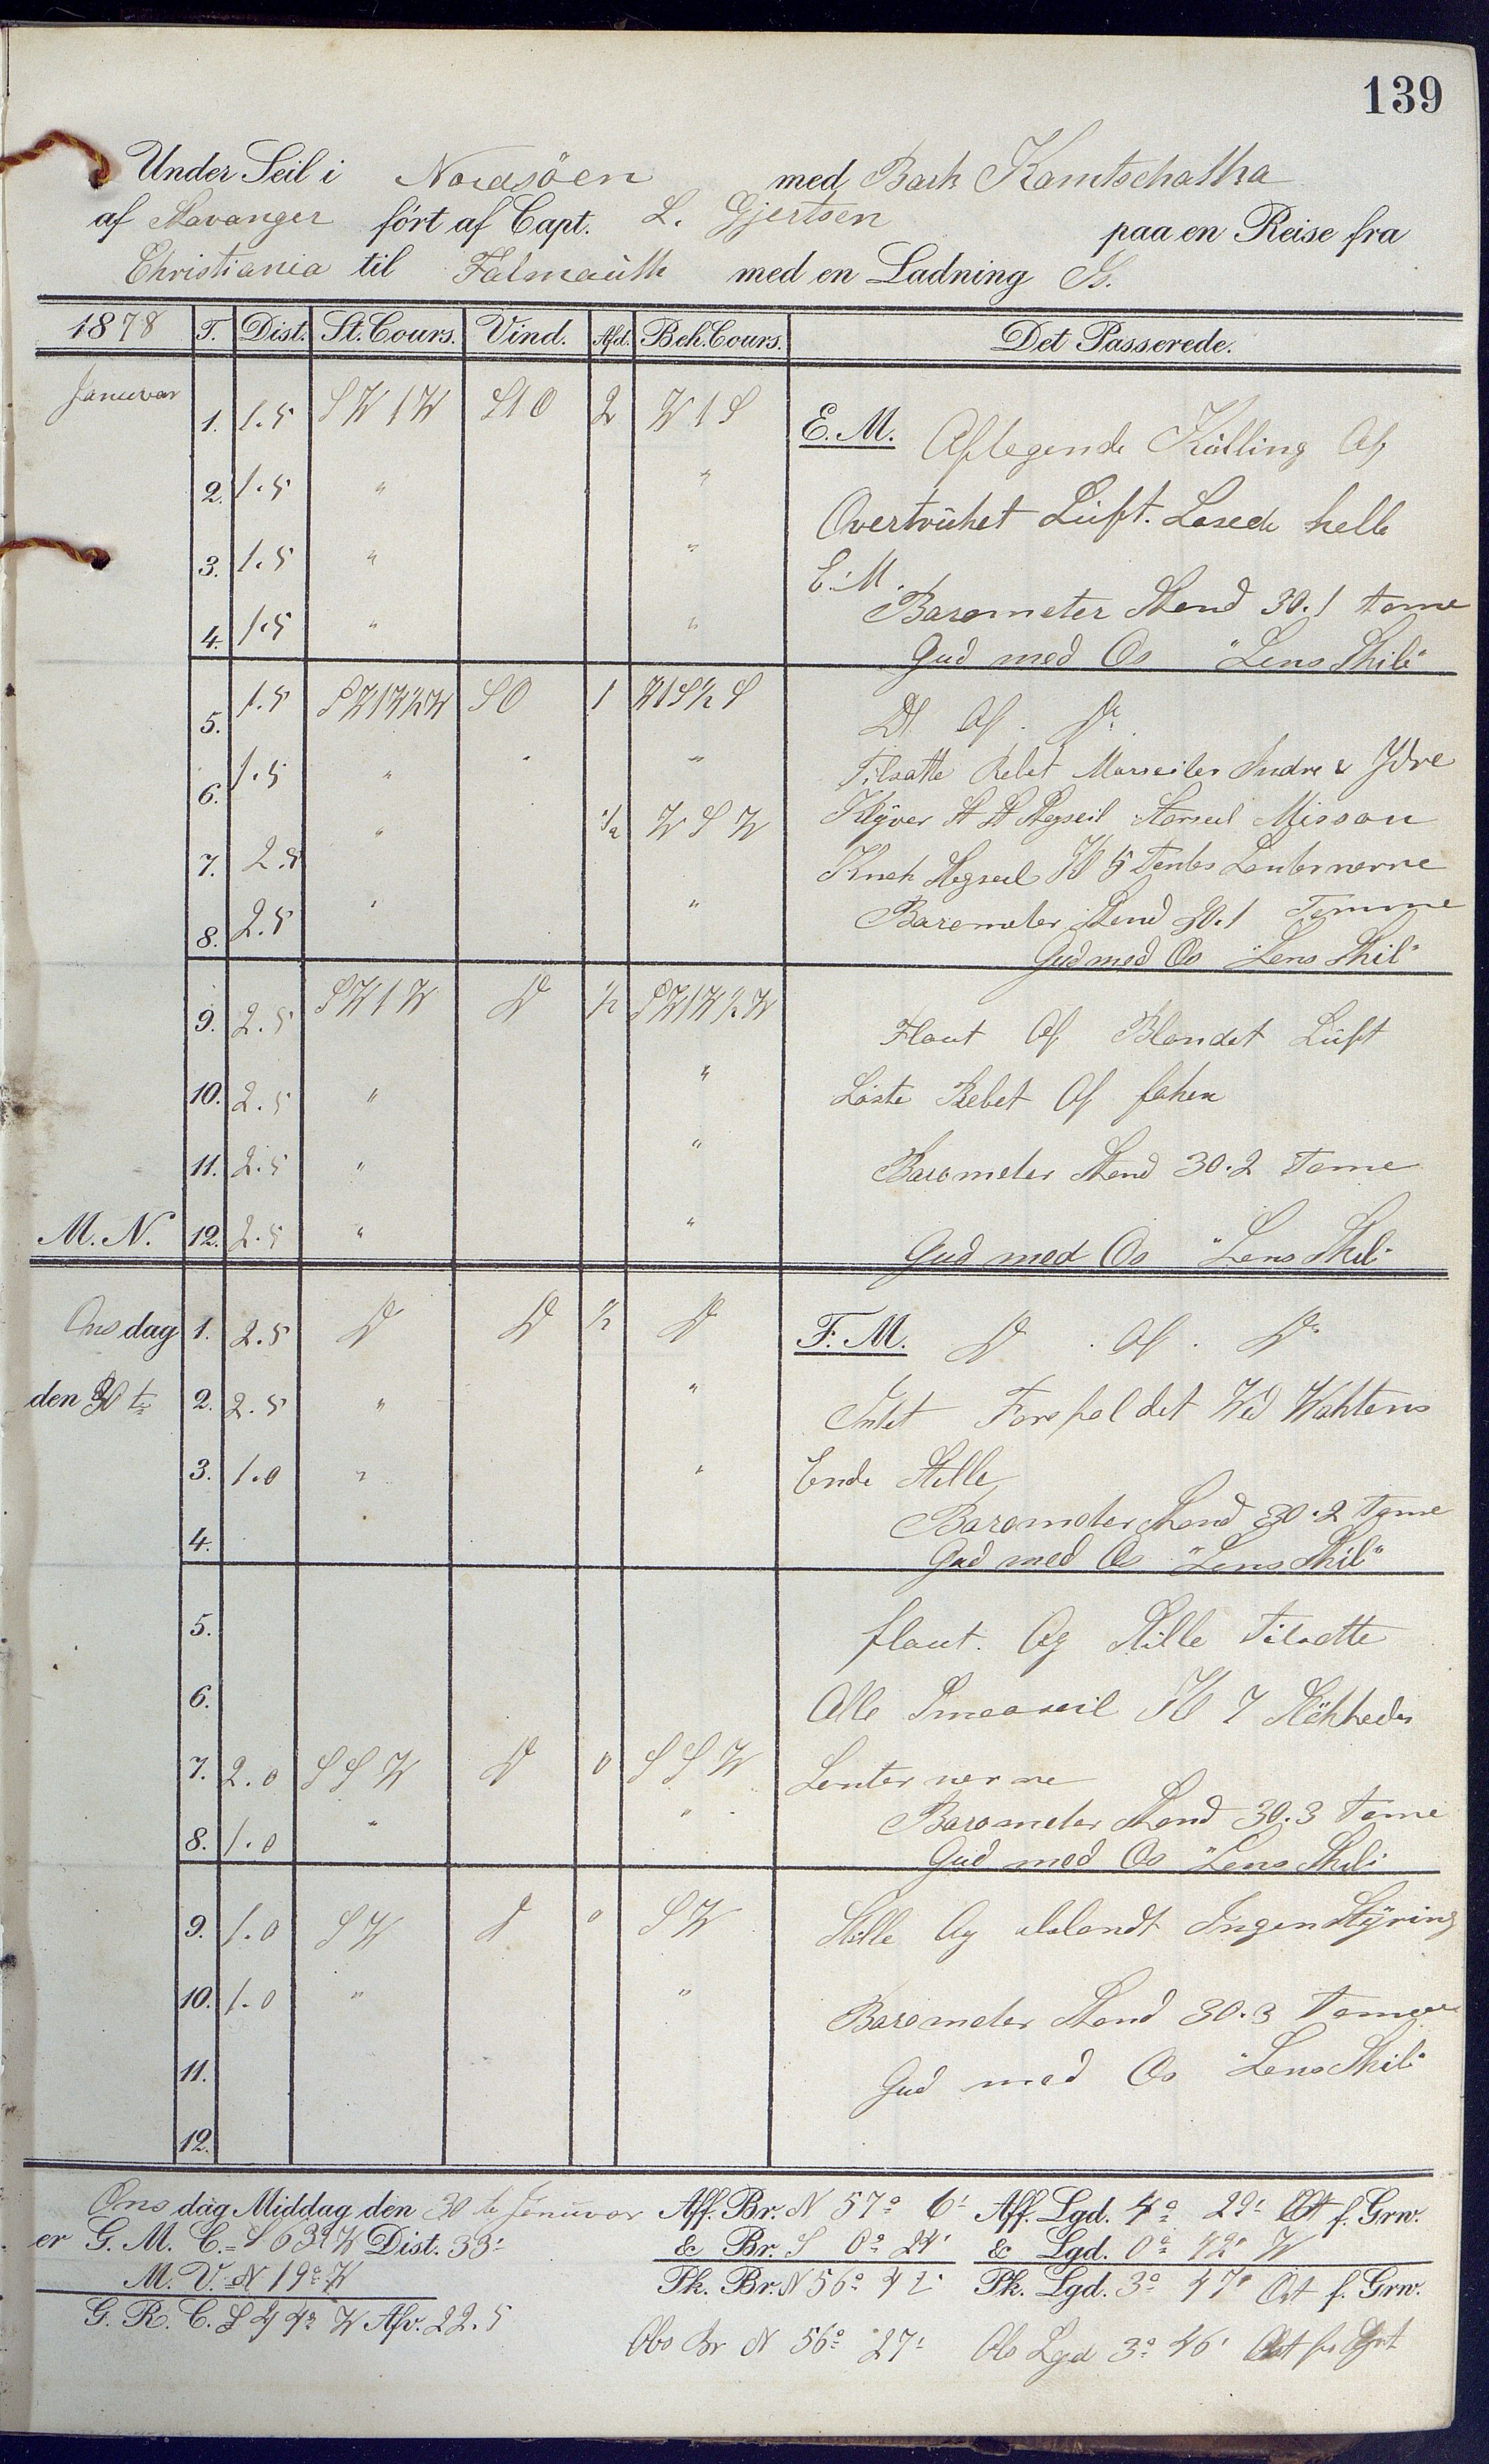 139
Under Seil i Nordsöen med Bark Kamtschatka
af Stavanger fört af Capt. L. Gjertsen paa en Reise fra
Christiania til Falmouth med en Ladning Is.
1878 T. Dist. St. Cours. Vind. Afd. Beh. Cours. Det Passerede.
Januvar
1. 1.5 SW 1 W S1O 2 W 1 S E. M. Aflegende Kulling Og
2. 1.5 " " Overtrukket Luft. Losede helle
3. 1.5 " " E. M.
Barometer Stand 30.1 tome
4. 1.5 " "
Gud med Os "Lens Skib"
5. 1.5 SW1W½W SO 1 W1S½S D. Og. D.
6. 1.5 " " " Tilsatte Rebet Marseiler Indre & Ydre
7. 2.5 " ½ WSW Klyver St St Stagseil Storseil Missan
Kneh Stagseil Kl 5 Tentes Lanternerne
8. 2.5 " " Barometer Stand 30.1 Tomme
Gud med Os "Lens Skib"
9. 2.5 SW 1 W D ½ SW1W½W Flaut Og Blandet Luft
10. 2.5 " " Löste Rebet Af foken
11. 2.5 " " Barometer Stand 30.2 tome
M. N. 12. 2.5 " " Gud med Os "Lens Skib"
Onsdag 1. 2.5 D D ½ D F. M. D. Og. D.
den 30 te 2. 2.5 " " Intet Forefaldet Ved Wahtens
3. 1.0 " " Ende Stille
Barometer Stand 30.2 tome
4.
Gud med Os "Lens Skib"
5. flaut. Og Stille tilsatte
6. Alle Smaaseil Kl 7
7. 2.0 SSW D 0 SSW Lanternerne
8. 1.0 " " Barometer Stand 30.3 tome
Gud med Os "Lens Skib"
9. 1.0 SW D 0 SW Stille Og Ingen Styring
10. 1.0 " " Barometer Stand 30.3 Tomme
11. Gud med Os "Lens Skib"
12.
Onsdag Middag den 30 te Januvar Aff. Br. N 57° 6' Aff. Lgd. 4° 29' Ost f. Grw.
er G. M. C. = S 63° W Dist. 33' & Br. S 0° 24' & Lgd. 0° 42' W
M. V. N 19° W Pk. Br. N 56° 42' Pk. Lgd. 3° 47' Ost f. Grw.
G. R. C. S 44° W Afv. 22.5
Obs Br N 56° 27' Obs Lgd 3° 46' Ost